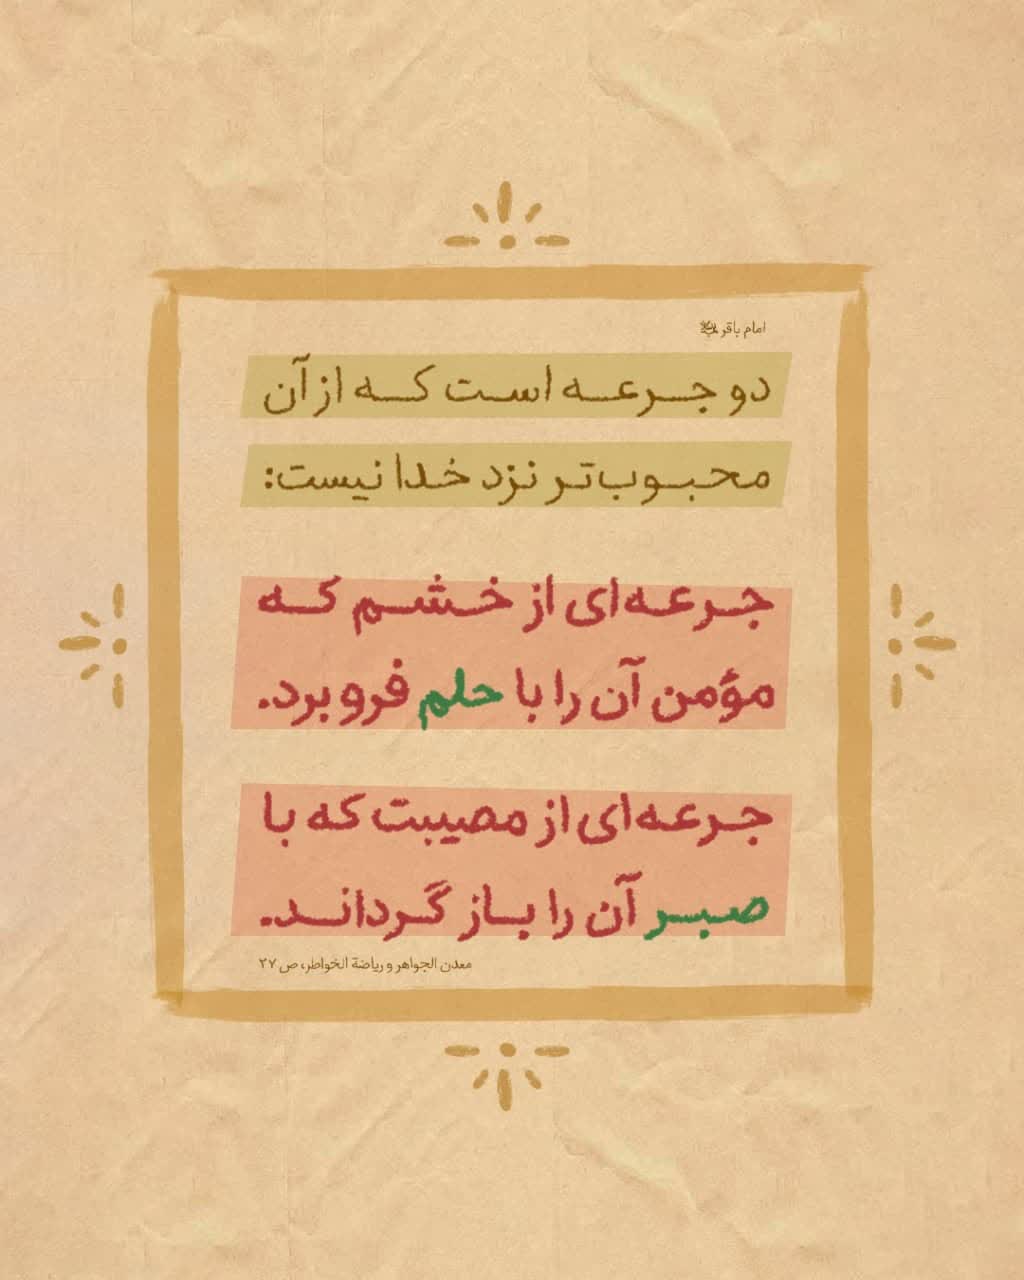 امام باقر
دو جرعه است که از آن
محبوب‌تر نزد خدا نیست:
جرعه‌ای از خشم که
مؤمن آن را با حلم فرو برد.
جرعه‌ای از مصیبت که با
صبر آن را باز گرداند.
معدن الجواهر و ریاضة الخواطر، ص ۲۷